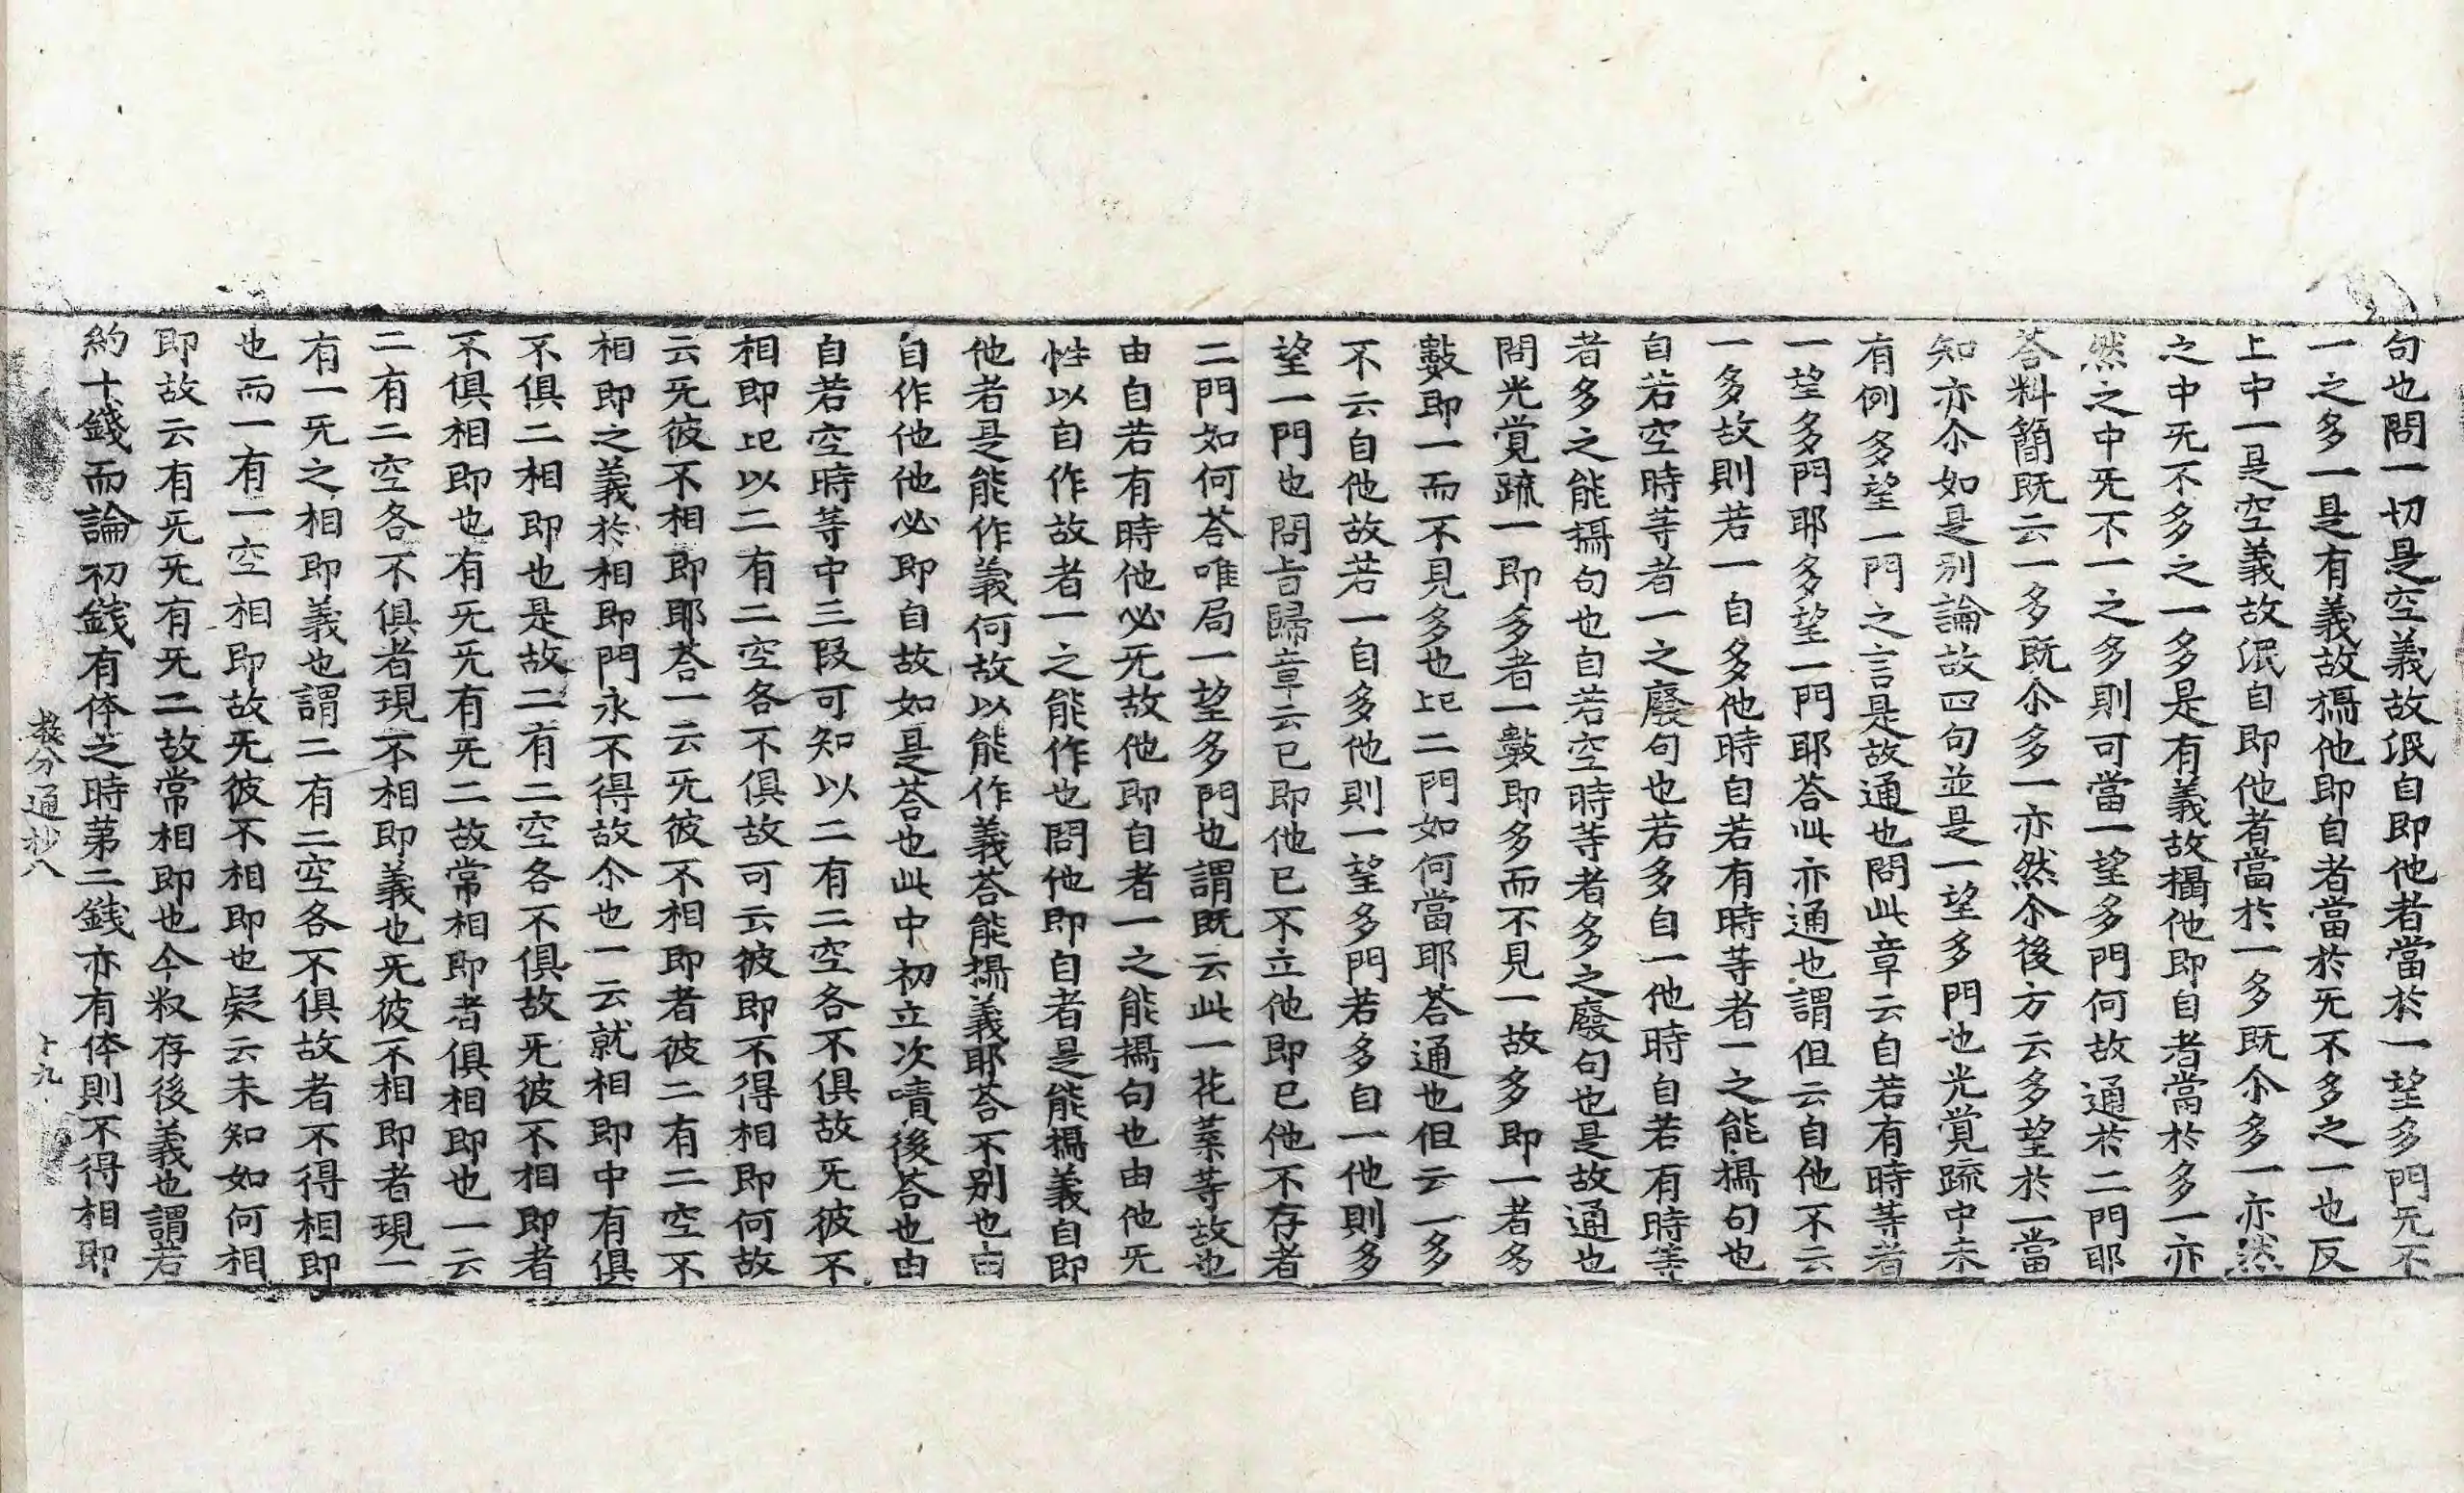 句也問一切是空義故泯自即他者當於一望多門无不
一之多一是有義故攝他即自者當於无不多之一也反
上中一是空義故泯自即他者當於一多既尒多一亦然
之中无不多之一多是有義故攝他即自者當於多一亦
然之中无不一之多則可當一望多門何故通於二門耶
荅料簡既云一多既尒多一亦然尒後方云多望於一當
知亦尒如是別論故四句並是一望多門也光覚䟽中未
有例多望一門之言是故通也問此章云自若有時等者
一望多門耶多望一門耶荅此亦通也謂但云自他不云
一多故則若一自多他時自若有時等者一之能攝句也
自若空時等者一之廢句也若多自一他時自若有時等
者多之能攝句也自若空時等者多之廢句也是故通也
問光覚䟽一即多者一數即多而不見一故多即一者多
數即一而不見多也此二門如何當耶荅通也但云一多
不云自他故若一自多他則一望多門若多自一他則多
望一門也問旨歸章云已即他已不立他即已他不存者
二門如何荅唯局一望多門也謂既云此一花葉等故也
由自若有時他必无故他即自者一之能攝句也由他无
性以自作故者一之能作也問他即自者是能攝義自即
他者是能作義何故以能作義荅能攝義耶荅不別也由
自作他他必即自故如是荅也此中初立次嘖後荅也由
自若空時等中三段可知以二有二空各不俱故无彼不
相即此以二有二空各不俱故可云彼即不得相即何故
云无彼不相即耶荅一云无彼不相即者彼二有二空不
相即之義於相即門永不得故尒也一云就相即中有俱
不俱二相即也是故二有二空各不俱故无彼不相即者
不俱相即也有无无有无二故常相即者俱相即也一云
二有二空各不俱者現不相即義也无彼不相即者現一
有一无之相即義也謂二有二空各不俱故者不得相即
也而一有一空相即故无彼不相即也疑云未知如何相
即故云有无无有无二故常相即也今叙存後義也謂若
約十錢而論初錢有体之時第二錢亦有体則不得相即
教分通抄八
十九